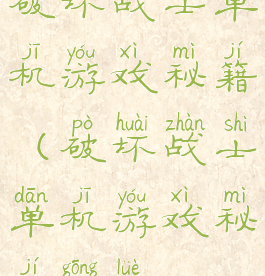 破坏战士单
jī yóu xì mì jí
机游戏秘籍
pò huài zhàn shì
（破坏战士
dān jī yóu xì mì
单机游戏秘
jí gōng lüè